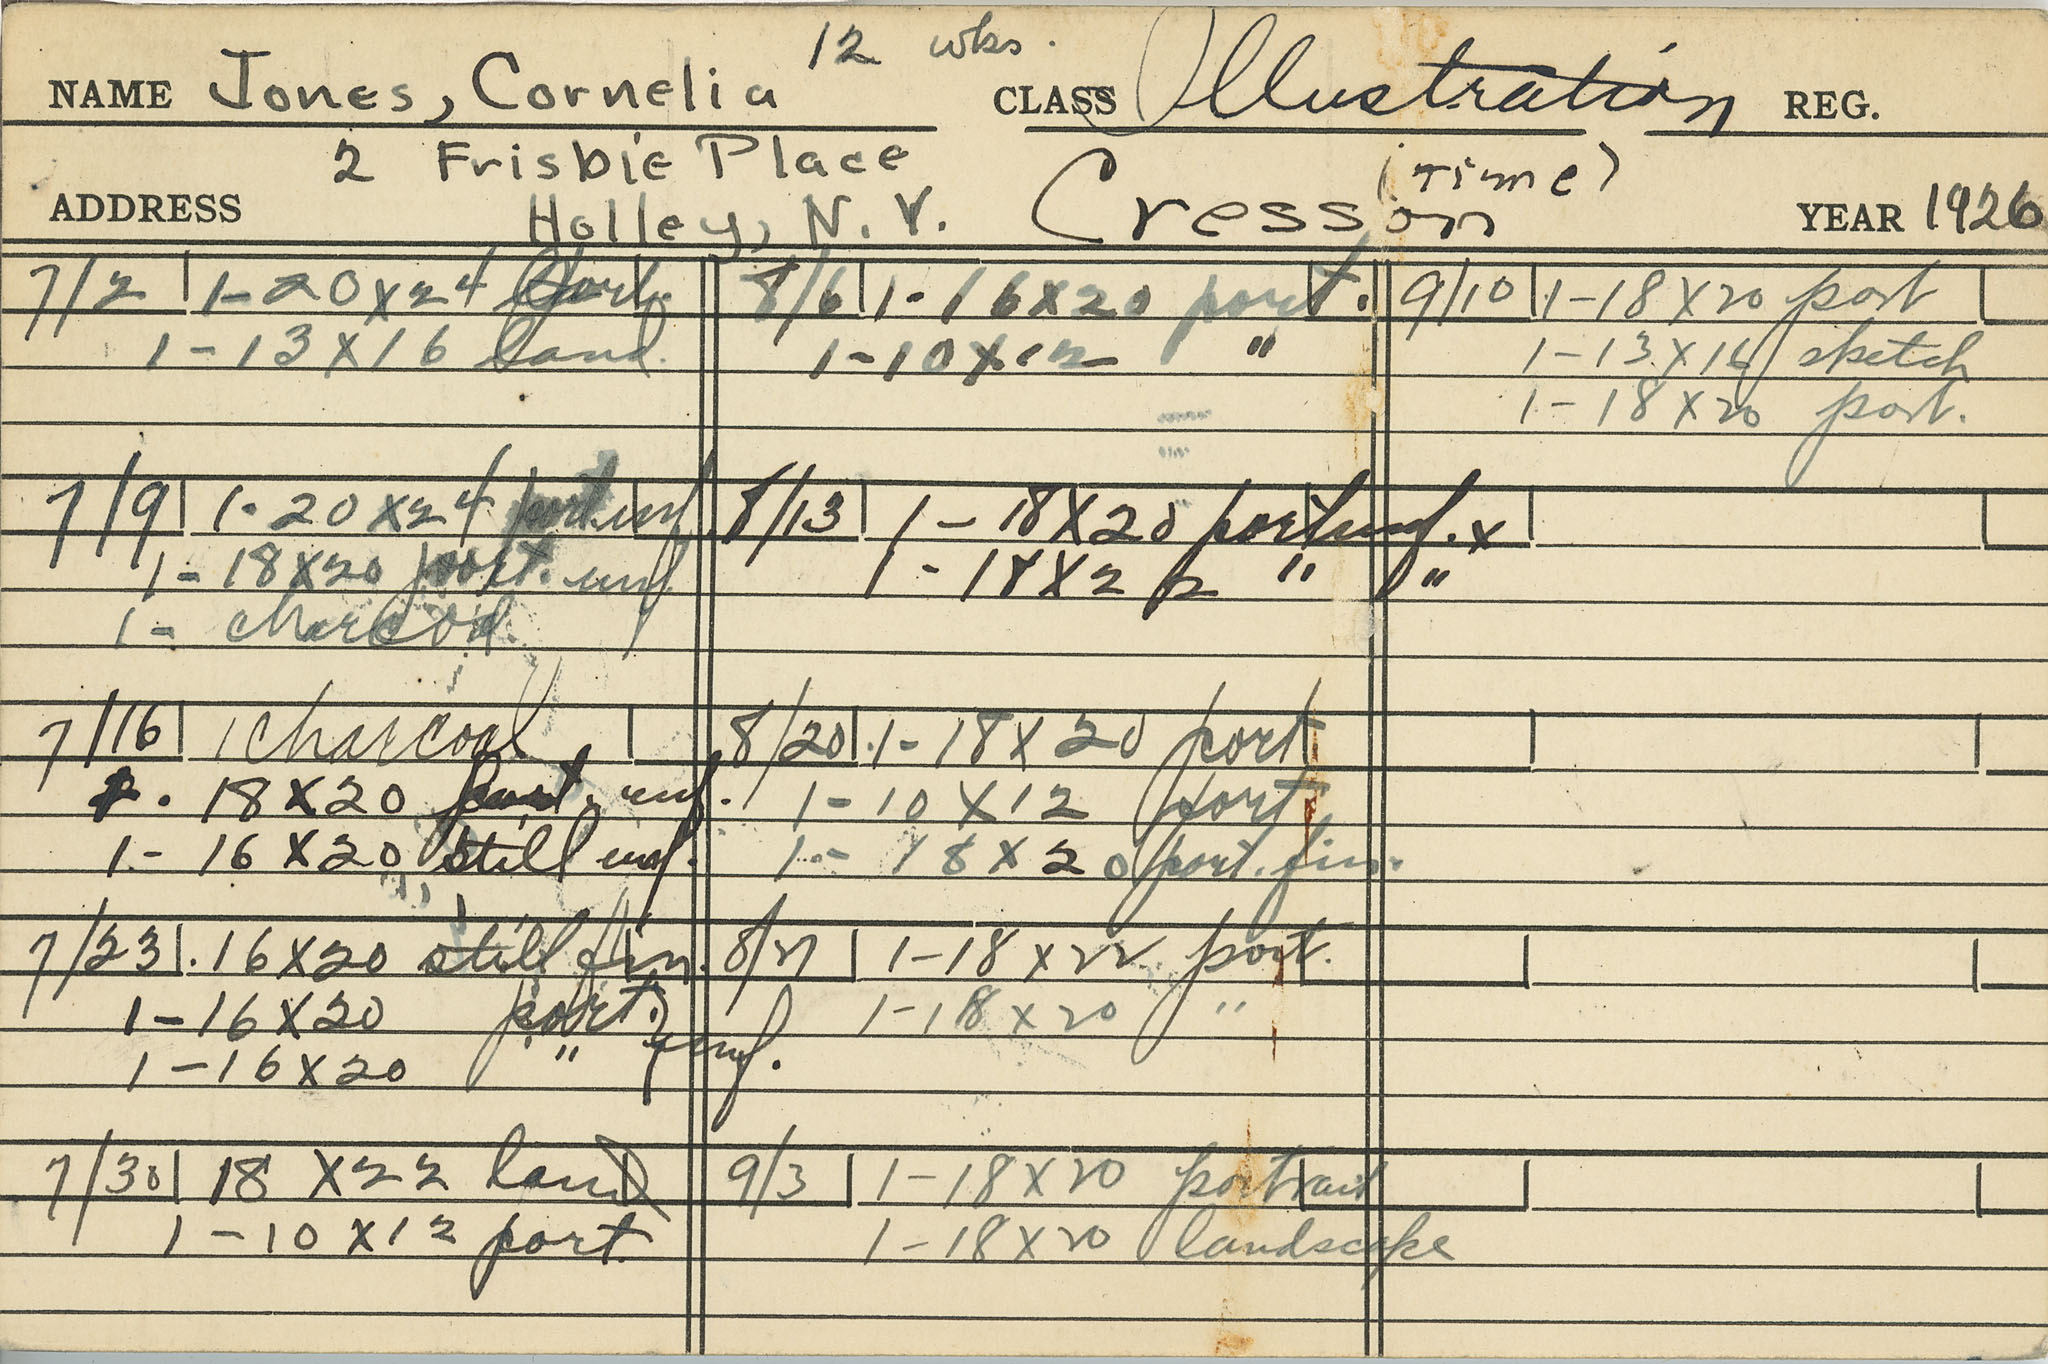 12 wks.
NAME Jones, Cornelia CLASS Illustration REG.
2 Frisbie Place (Time)
ADDRESS Holley, N.Y. Cresson YEAR 1926
7/2 1-20X24 port.
1-13X16 land.
7/9 1-20X24 port. unf.
1-18X20 port. unf.
1- charcoal
7/16 1 charcoal
18X20 port. unf.
1-16X20 still unf.
7/23 16X20 still fin.
1-16X20 port. } unf.
1-16X20 "
7/30 18 X22 land
1-10X12 port
8/6 1-16X20 port.
1-10X12 "
8/13 1-18X20 port unf. x
1-18X22 " "
8/20 1-18X20 port
1-10X12 port
1-18X20 port. fin.
8/27 1-18X22 port.
1-18X20 "
9/3 1-18X20 portrait
1-18X20 landscape
9/10 1-18X20 port
1-13X16 sketch
1-18X20 port.